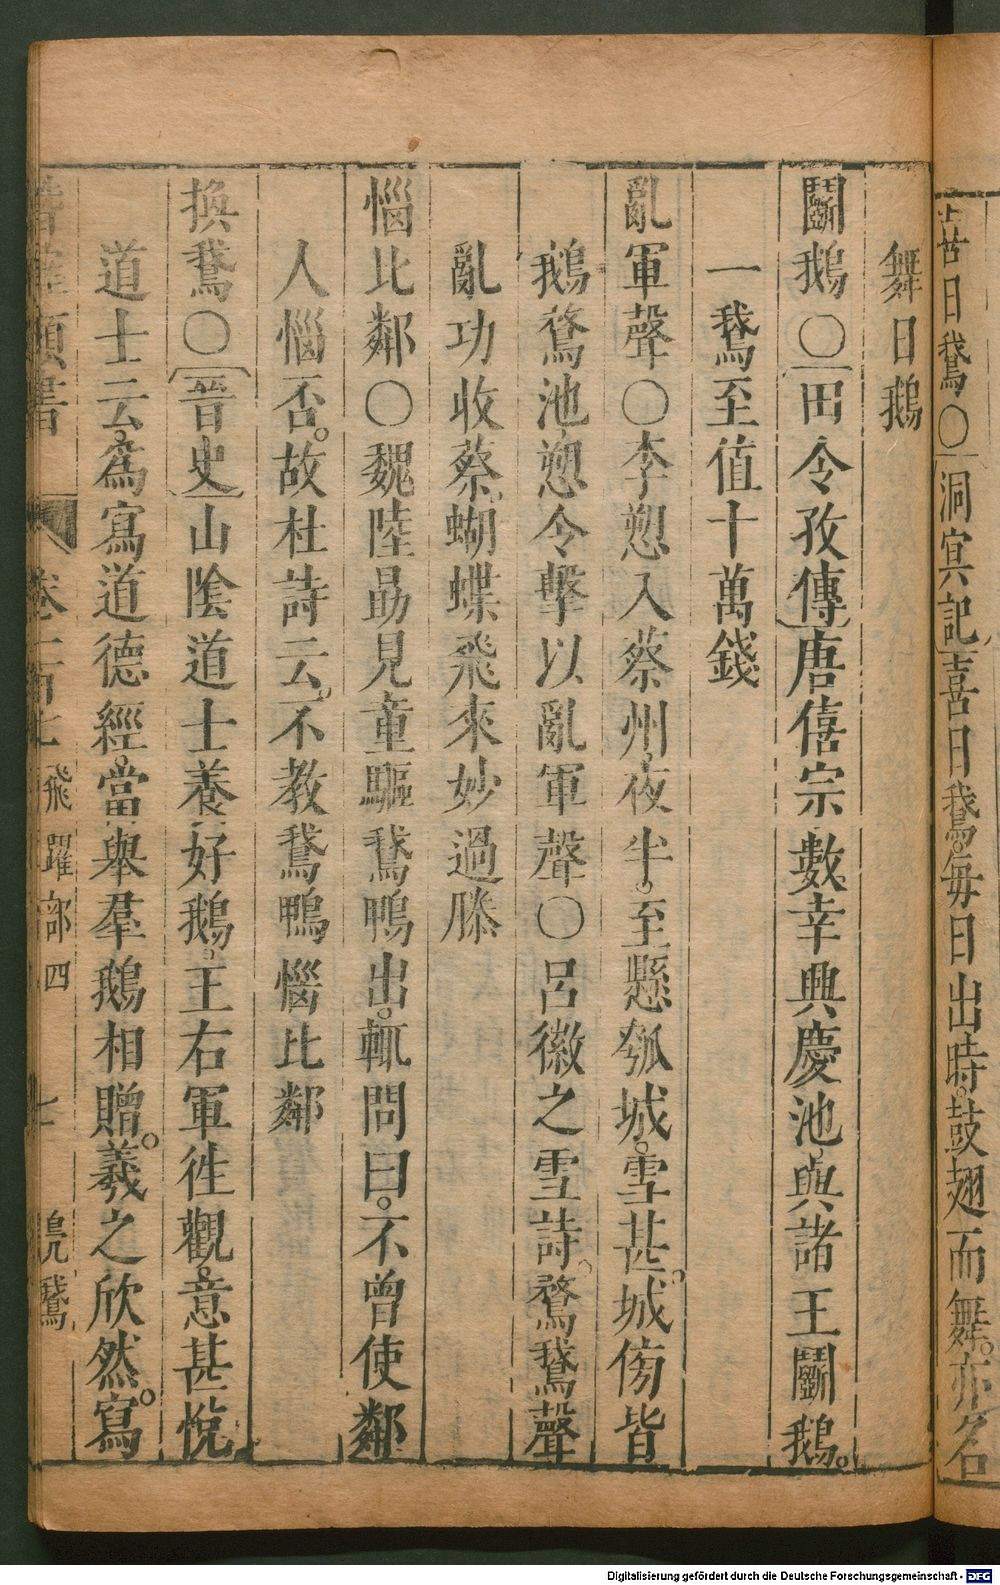 苦日鵞○洞冥記喜日鵞。每日出時。鼓翅而舞。亦名
舞日鵝
鬬鵝○田令孜傳唐僖宗數幸興慶池。與諸王鬬鵝。
一鵞至值十萬錢
亂軍聲○李愬入蔡州。夜半。至懸瓠城。雪甚。城傍皆
鵝鶩池愬令擊以亂軍聲○呂徽之雪詩。鶩鵞聲
亂功收蔡。蝴蝶飛來妙過滕
惱比鄰○魏陸勗見童驅鵞鴨出。輒問曰。不曾使鄰
人惱否。故杜詩云。不教鵞鴨惱比鄰
換鵞○晉史山陰道士養好鵝。王右軍徃觀。意甚悅
道士云。為寫道德經。當舉羣鵝相贈。羲之欣然。寫
類書 卷一百七 飛躍部四 七 鳧鵞
Digitalisierung gefördert durch die Deutsche Forschungsgemeinschaft - DFG